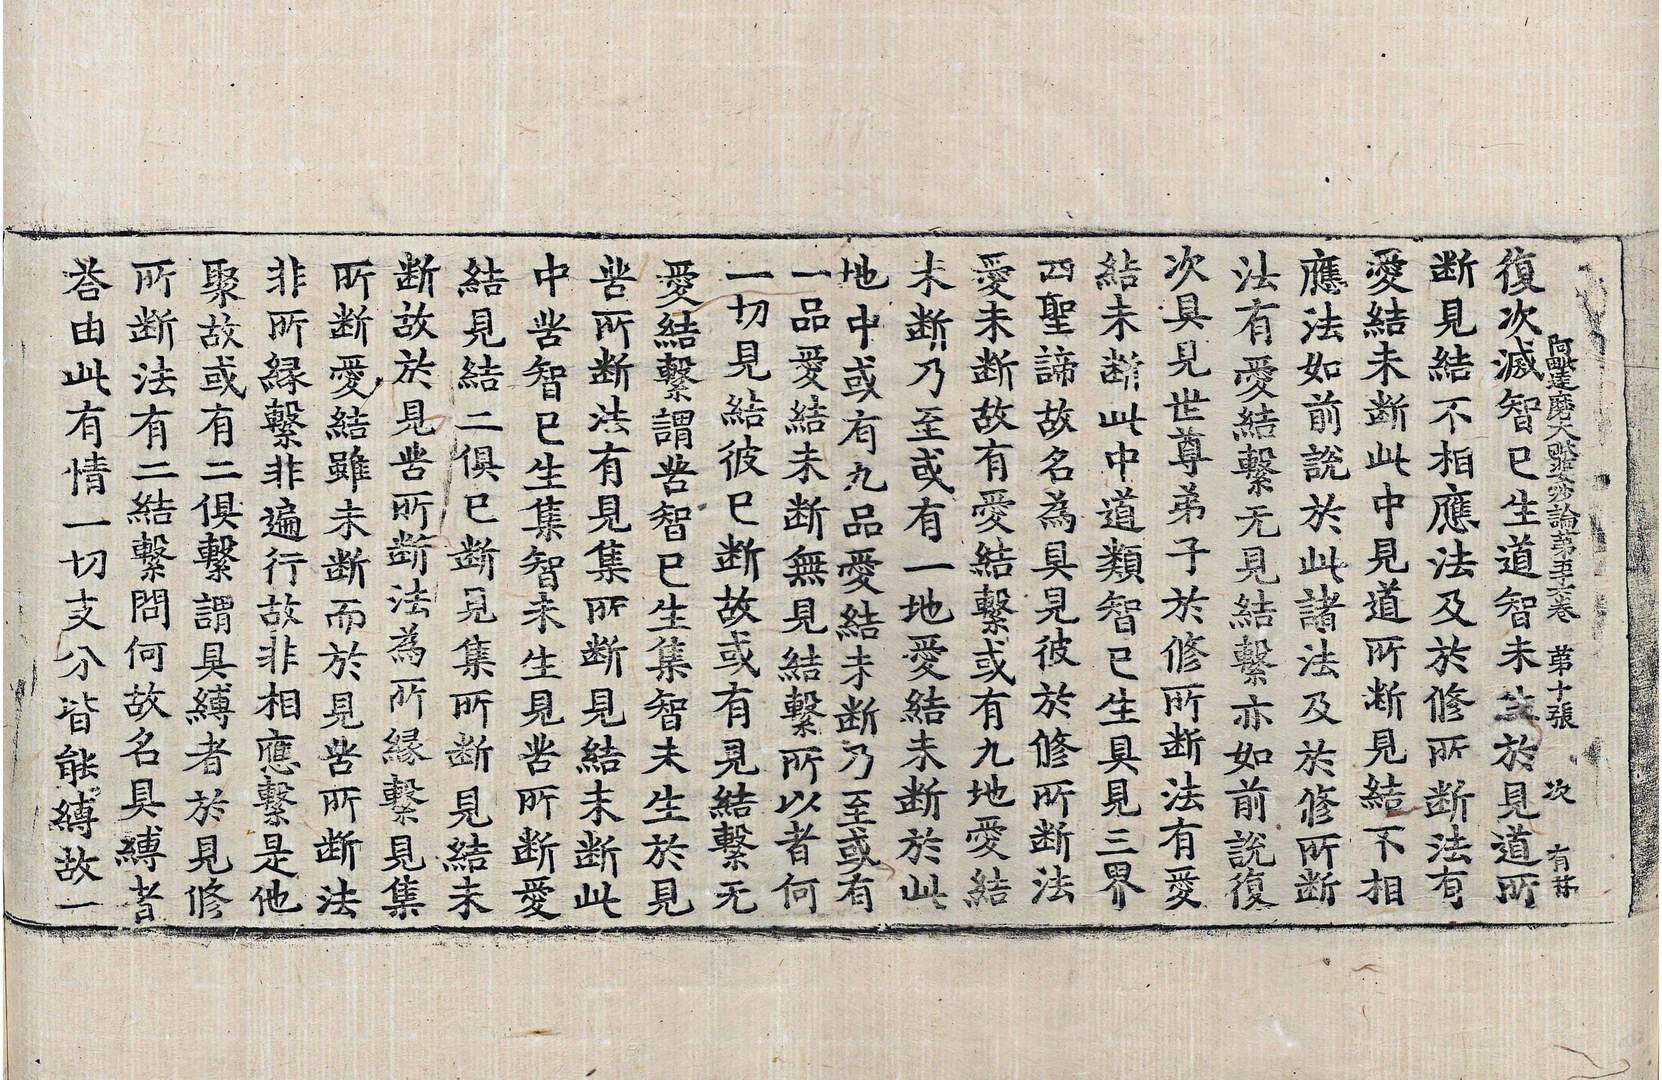 阿毗達磨大毗婆沙論第五十六卷　第十張　次　有祐
復次滅智已生道智未生於見道所
断見結不相應法及於修所断法有
愛結未断此中見道所断見結不相
應法如前說於此諸法及於修所断
法有愛結繫无見結繫亦如前說復
次具見世尊弟子於修所断法有愛
結未断此中道類智已生具見三界
四聖諦故名為具見彼於修所断法
愛未断故有愛結繫或有九地愛結
未断乃至或有一地愛結未断於此
地中或有九品愛結未断乃至或有
一品愛結未断無見結繫所以者何
一切見結彼已断故或有見結繫无
愛結繫謂苦智已生集智未生於見
苦所断法有見集所断見結未断此
中苦智已生集智未生見苦所断愛
結見結二俱已断見集所断見結未
断故於見苦所断法為所緣繫見集
所断愛結雖未断而於見苦所断法
非所緣繫非遍行故非相應繫是他
聚故或有二俱繫謂具縛者於見修
所断法有二結繫問何故名具縛者
荅由此有情一切支分皆能縛故一